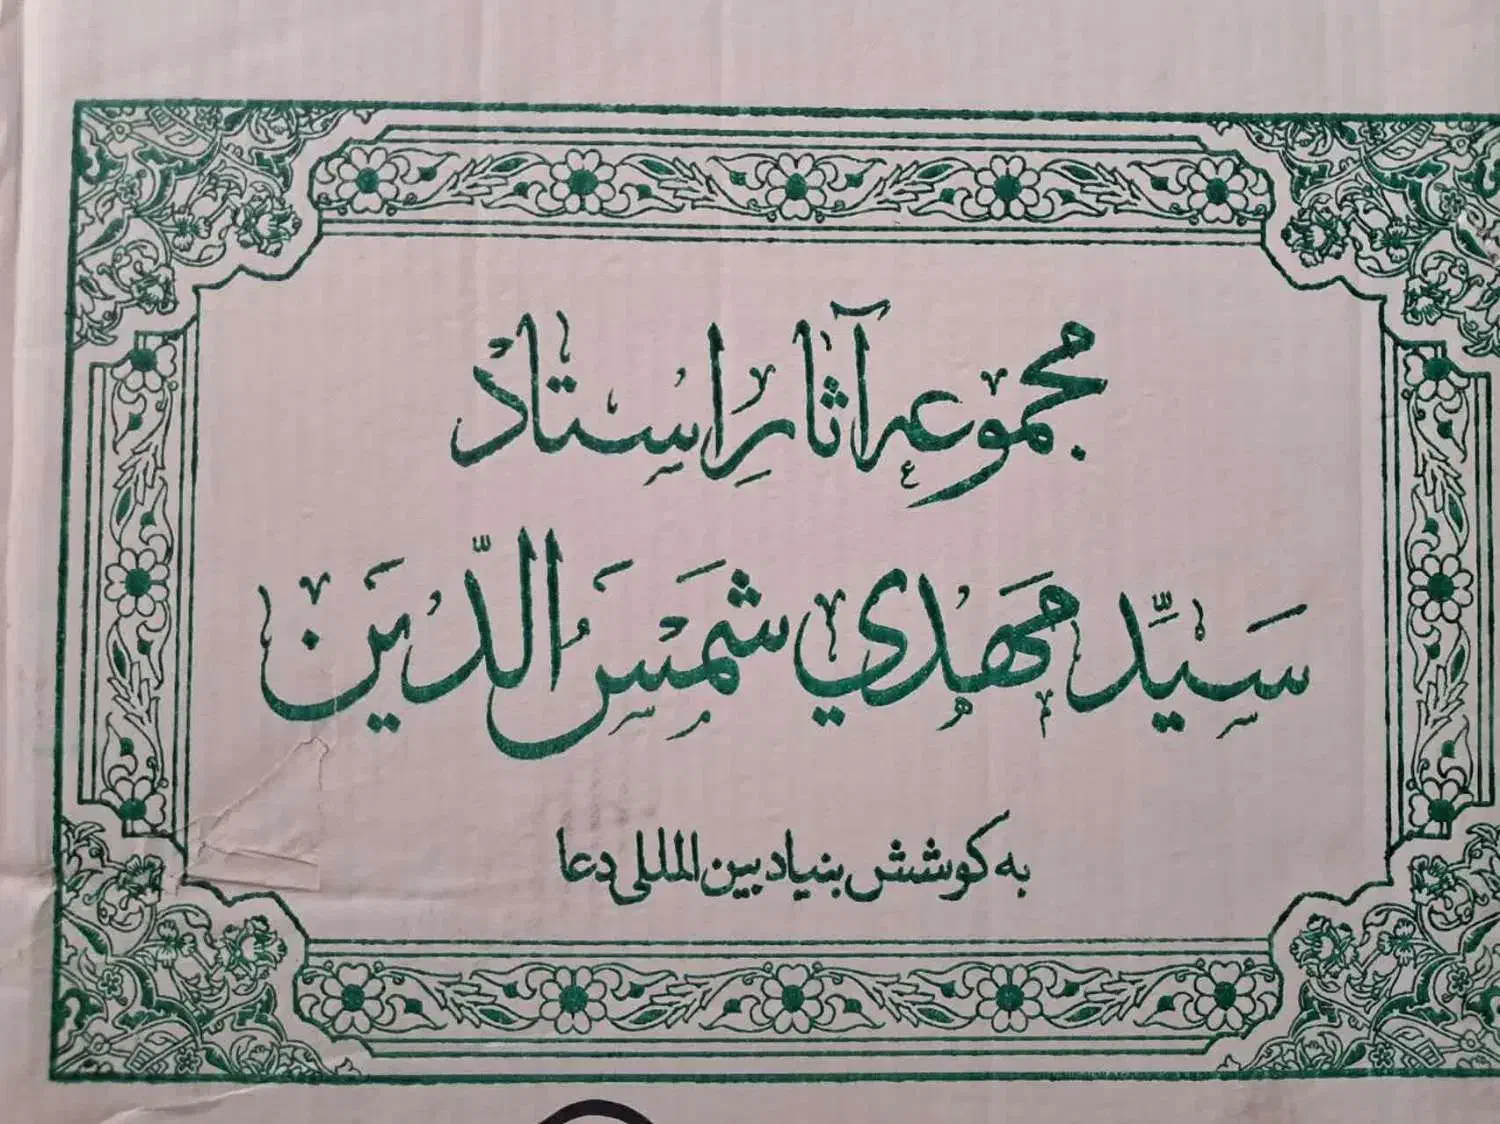 مجموعه آثارِ استاد
سَیِّد مَهدي شَمَسَ الدّیَن
به کوشش بنیاد بین المللی دعا